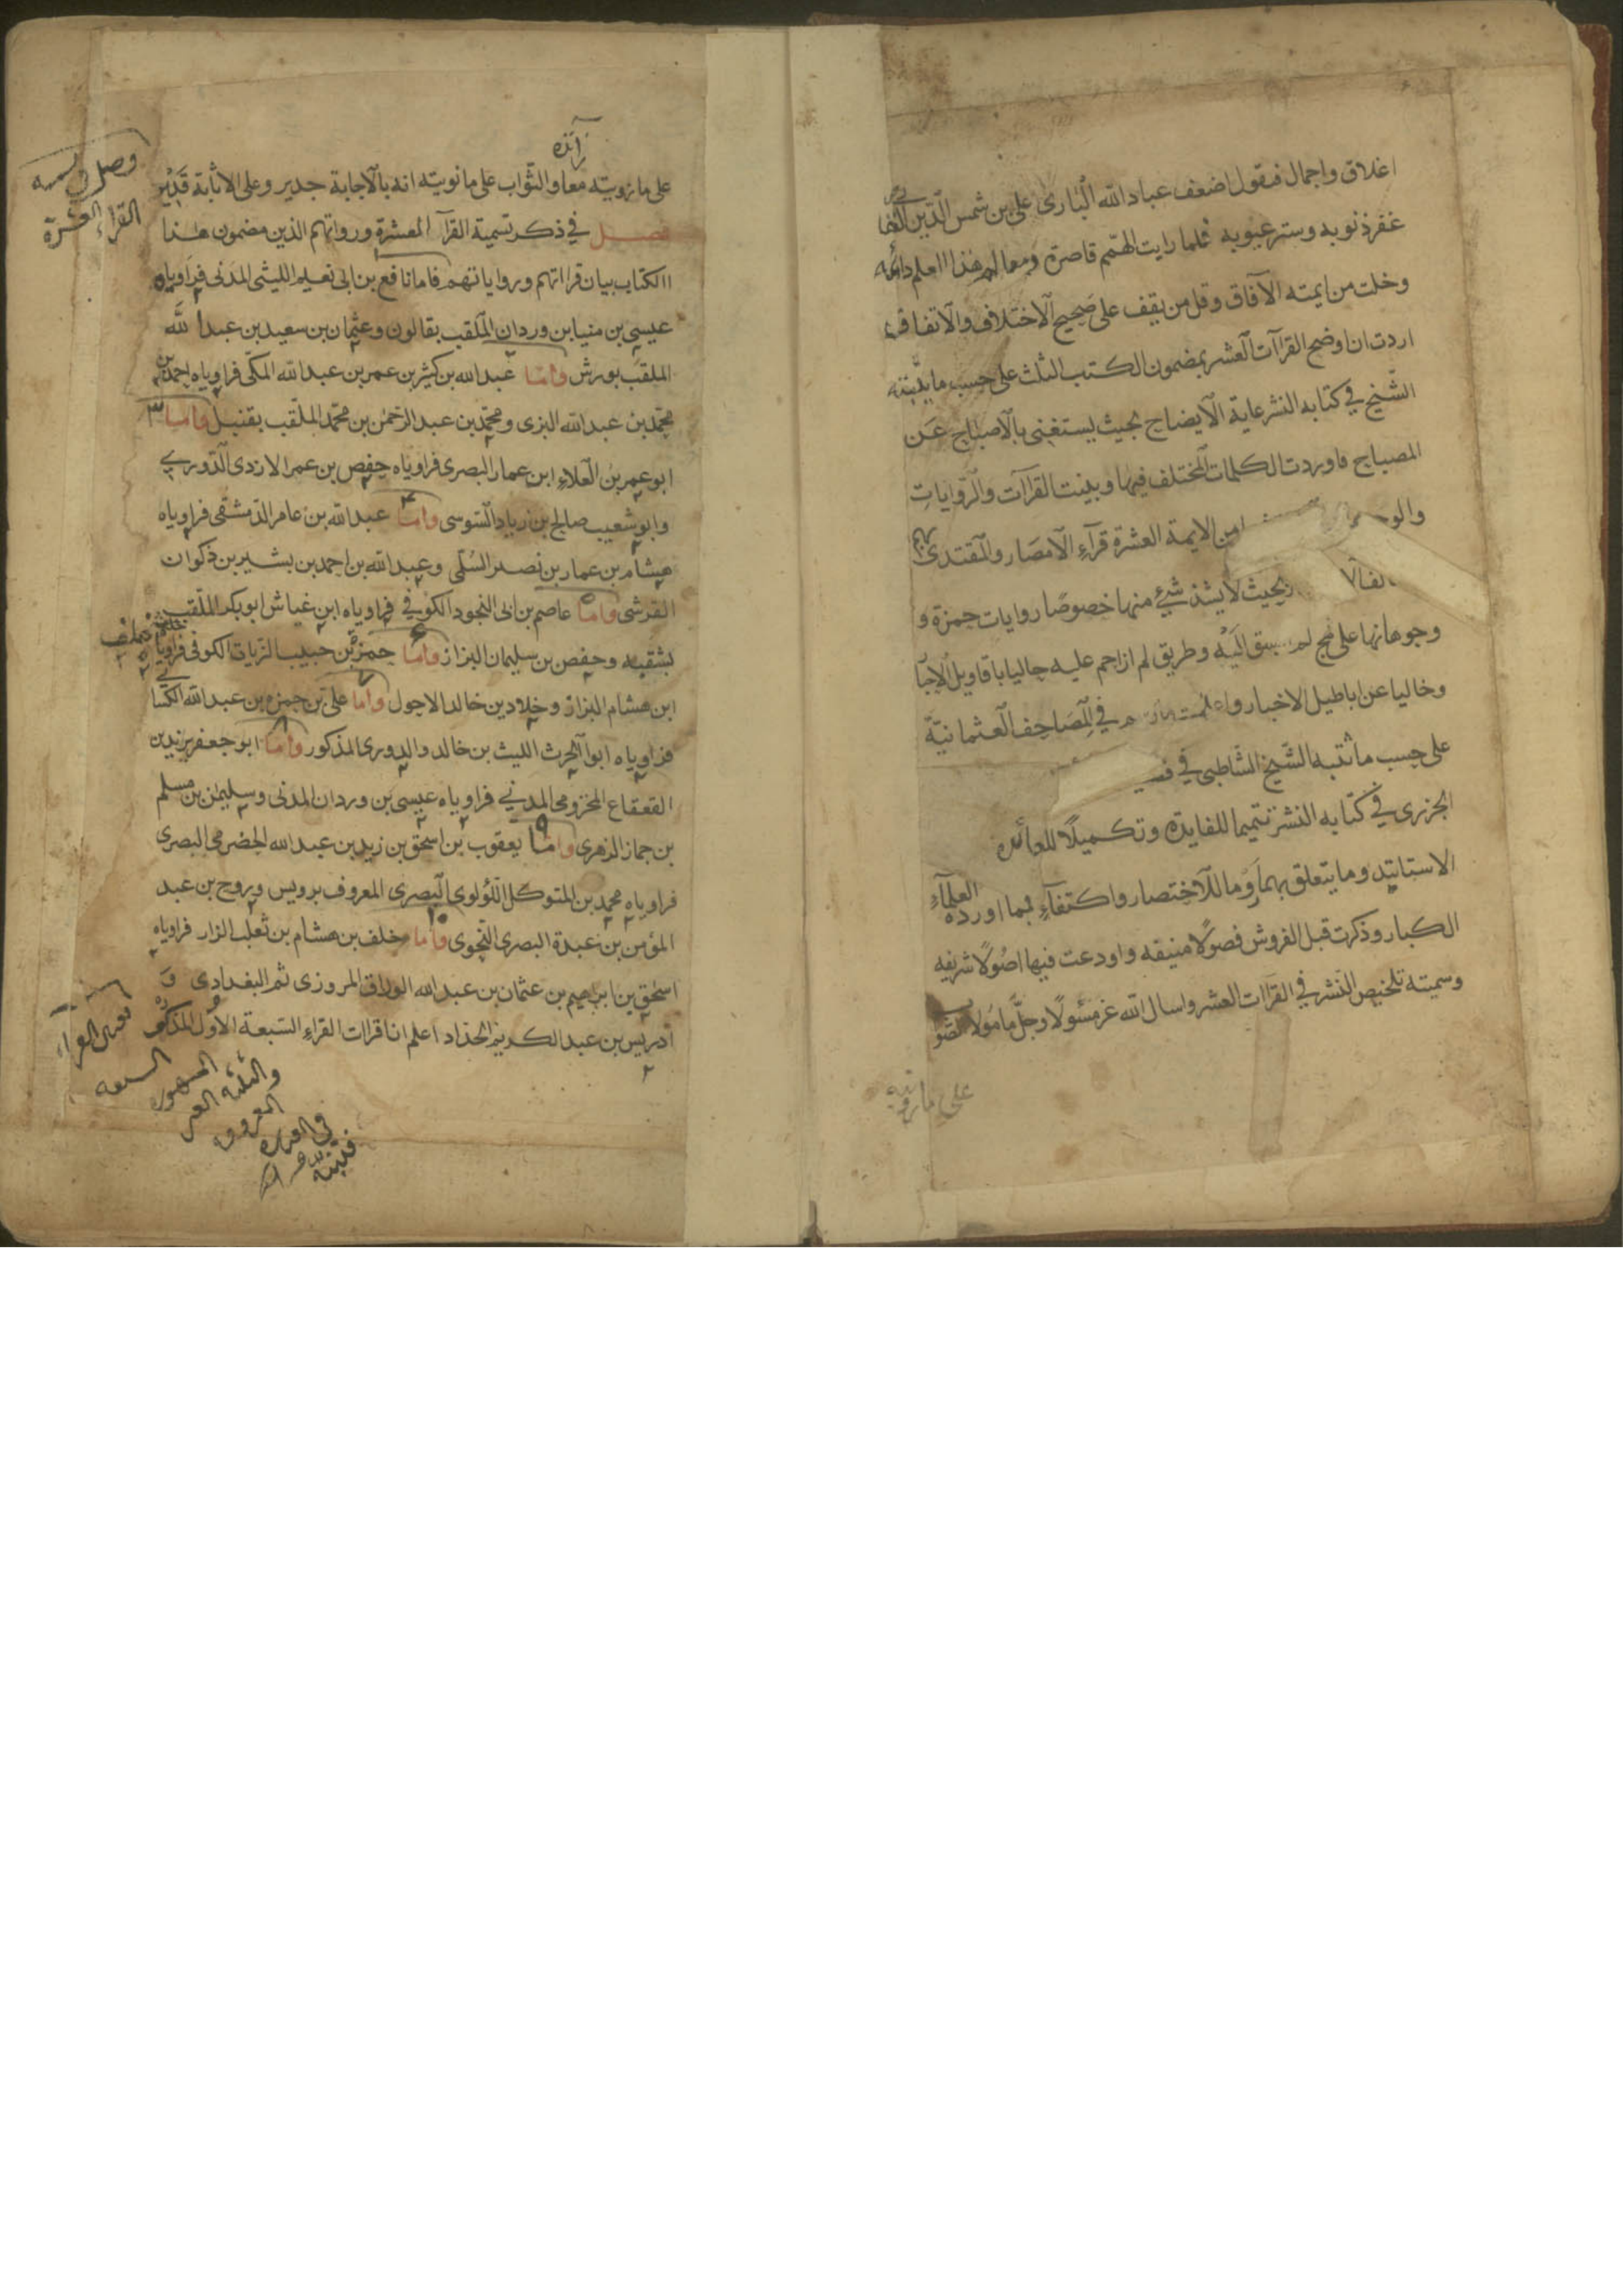 اغلاق واجمال فيقول اضعف عباد الله البارى على بن شمس الدين
غفر ذنوبه وستر عيوبه فلما رايت الهمم قاصرة ومعالم هذا العلم داثرة
وخلت من ايمته الآفاق وقل من يقف على صحيح الاختلاف والاتفاق
اردت ان اوضح القراآت العشر بمضمون الكتب الثلث على حسب ما بينه
الشيخ في كتابه النشر غاية الايضاح بحيث يستغنى بالاصباح عن
المصباح فاوردت الكلمات المختلف فيها وبينت القراآت والروايات
من الايمة العشرة قرآء الامصار والمقتدى بهم
بحيث لا يشذ شئ منها خصوصا روايات حمزة و
وجوهاتها على نهج لم يسبق اليه وطريق لم ازاحم عليه حاليا باقاويل الاحبار
وخاليا عن اباطيل الاخبار في المصاحف العثمانية
على حسب ما ثبته الشيخ الشاطبى في
الجزرى في كتابه النشر تتميما للفايدة وتكميلا للعائدة
الاسانيد وما يتعلق بها روما للاختصار واكتفآء بما اورده العلمآء
الكبار وذكرت قبل الفروش فصولا منيفه واودعت فيها اصولا شريفه
وسميته تلخيص النشر في القراآت العشر واسال الله عز مسئولا وجل مامولا
على ما رويته
على ما رويته معا والثواب على ما نويته انه بالاجابة جدير وعلى الاثابة قدير
فصل في ذكر تسمية القرآ العشرة ورواتهم الذين مضمون هذا
الكتاب بيان قراتهم ورواياتهم فاما نافع بن ابى نعيم الليثى المدنى فراوياه
عيسى بن مينا بن وردان الملقب بقالون وعثمان بن سعيد بن عبد الله
الملقب بورش واما عبد الله بن كثير بن عمر بن عبد الله المكى فراوياه احمد بن
محمد بن عبد الله البزى ومحمد بن عبد الرحمن بن محمد الملقب بقنبل واما ٣
ابو عمر بن العلاء ابن عمار البصرى فراوياه حفص بن عمر الازدى الدورى
وابو شعيب صالح بن زياد السوسى واما عبد الله بن عامر الدمشقى فراوياه
هشام بن عمار بن نصير السلمى وعبد الله بن احمد بن بشير بن ذكوان
القرشى واما عاصم بن ابى النجود الكوفى فراوياه ابن غياش ابو بكر الملقب
بشعبه وحفص بن سليمان البزاز واما حمزة بن حبيب الزيات الكوفى فراوياه خلف
ابن هشام البزاز وخلاد بن خالد الاحول واما على بن حمزه بن عبد الله الكسائى
فراوياه ابو الحرث الليث بن خالد والدورى المذكور واما ابو جعفر يزيد بن
القعقاع المخزومى المدنى فراوياه عيسى بن وردان المدنى وسليمن بن مسلم
بن جماز الزهرى واما يعقوب بن اسحق بن زيد بن عبد الله الحضرمى البصرى
فراوياه محمد بن المتوكل اللؤلوى البصرى المعروف برويس وروح بن عبد
المؤمن بن عبدة البصرى النحوى واما خلف بن هشام بن ثعلب الزار فراوياه
اسحق بن ابراهيم بن عثمان بن عبد الله الوراق المروزى ثم البغدادى و
ادريس بن عبد الكريم الحداد اعلم ان اقراات القراء السبعة الاول المذكور
القراء العشرة